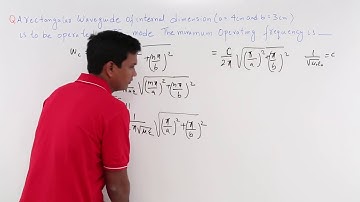 Q. A rectangular Waveguide of internal dimension (a = 4cm and b = 3cm)
is to be operated mode The minimum operating frequency is __
ω_c + (nπ/b)²
= c/2π √(π/a)² + (π/b)² 1/√μ₀ε₀ = c
√(mπ/a)² + (nπ/b)²
1/2π√με √(π/a)² + (π/b)²